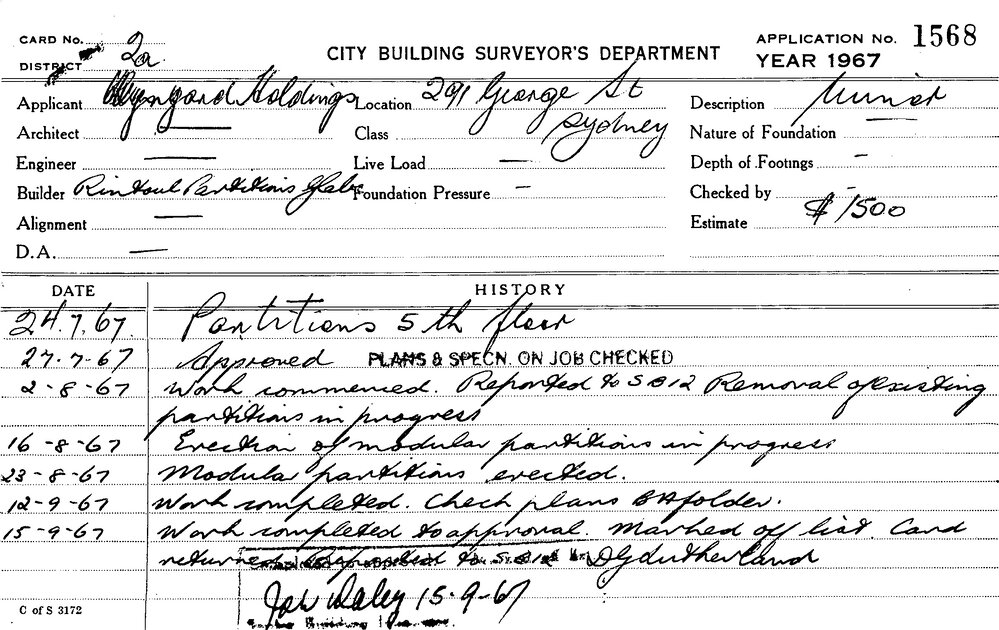 CARD No. 2a
DISTRICT
CITY BUILDING SURVEYOR'S DEPARTMENT
APPLICATION No. 1568
YEAR 1967
Applicant Wynyard Holdings Location 291 George St Sydney Description Minor
Architect — Class Nature of Foundation —
Engineer — Live Load — Depth of Footings -
Builder Rintoul Partitions Foundation Pressure - Checked by -
Alignment — Estimate $1500
D.A. —
DATE HISTORY
24.7.67. Partitions 5th floor
27-7-67 Approved PLANS & SPECN. ON JOB CHECKED
2-8-67 Work commenced. Reported to SB12 Removal of existing
partitions in progress
16-8-67 Erection of modular partitions in progress
23-8-67 Modular partitions erected.
12-9-67 Work completed. Check plans BA folder.
15-9-67 Work completed to approval. Marked off list. Card
returned Reported to
15-9-67
C of S 3172